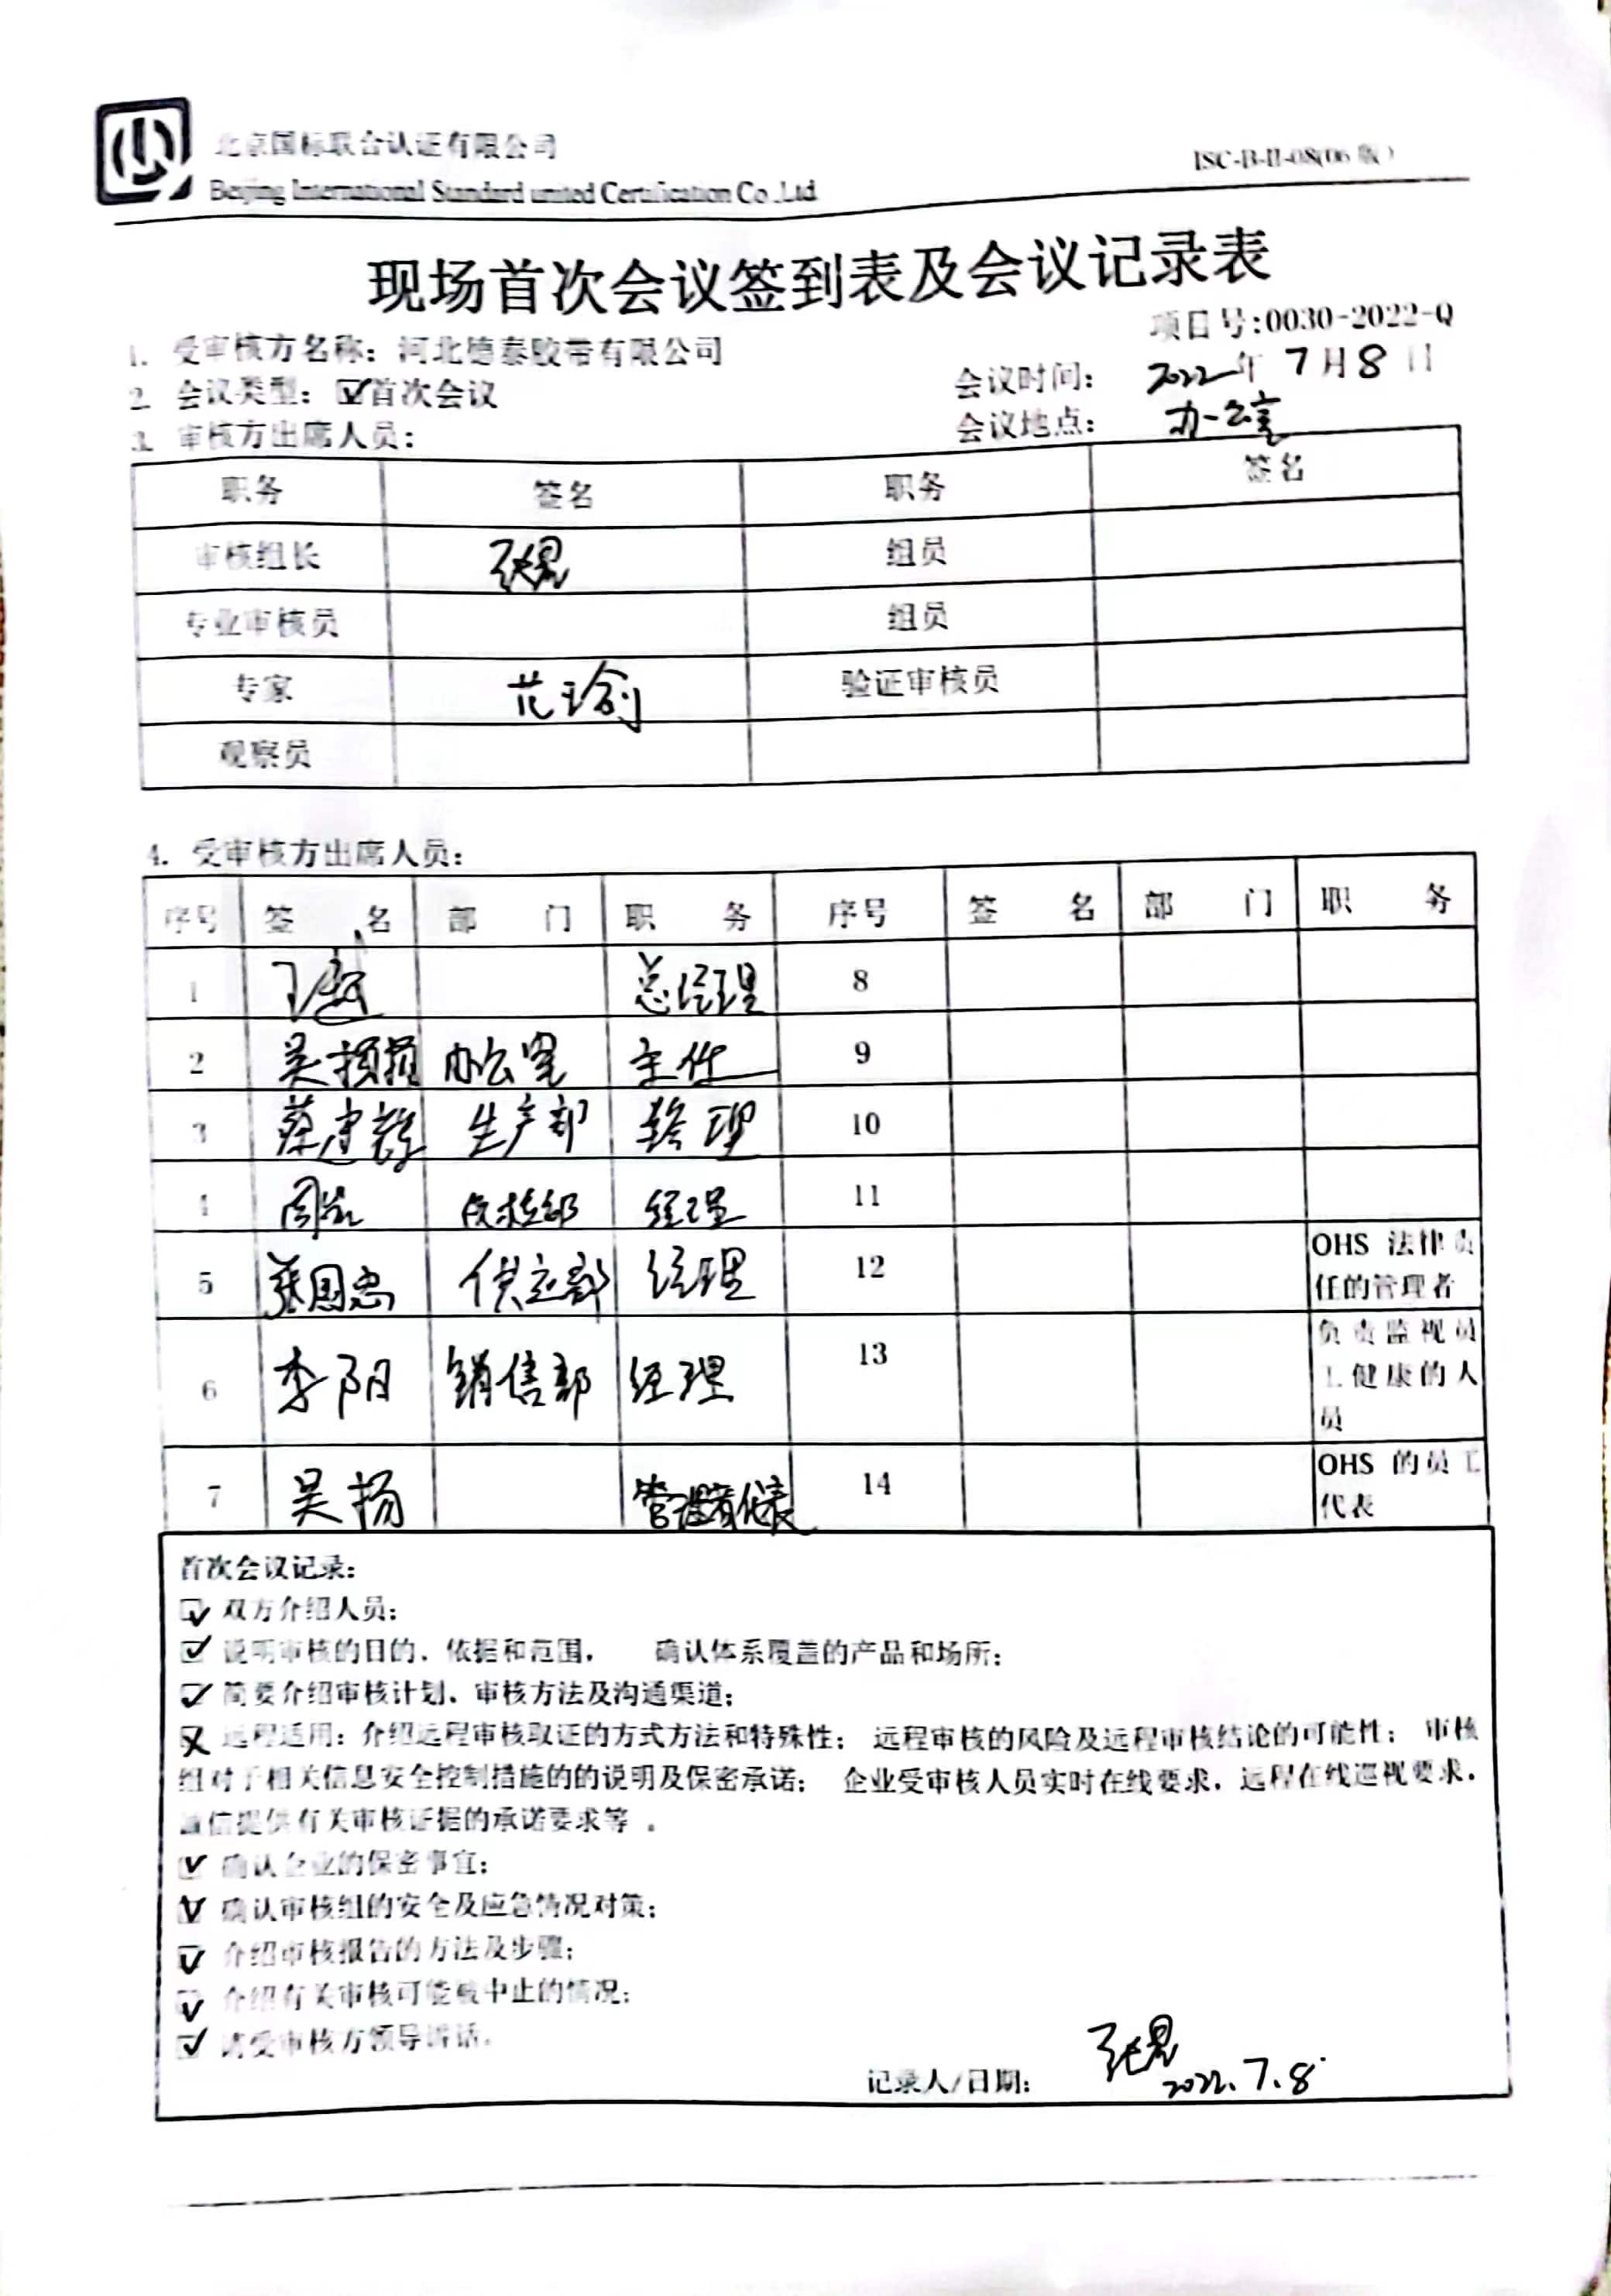 北京国标联合认证有限公司
Beijing International Standard united Certification Co.,Ltd.
ISC-B-II-08(06版)
现场首次会议签到表及会议记录表
项目号:0030-2022-Q
1. 受审核方名称：河北德泰胶带有限公司
会议时间： 2022年 7月8日
2. 会议类型：☑首次会议
会议地点： 办公室
3. 审核方出席人员：
职务 签名 职务 签名
审核组长 张昆 组员
专业审核员 组员
专家 范玉剑 验证审核员
观察员
4. 受审核方出席人员：
序号 签 名 部 门 职 务 序号 签 名 部 门 职 务
1 总经理 8
2 办公室 主任 9
3 生产部 经理 10
4 质检部 经理 11
5 张国忠 供应部 经理 12 OHS 法律责
任的管理者
6 李阳 销售部 经理 13 负责监视员
工健康的人
员
7 吴扬 管理者代表 14 OHS 的员工
代表
首次会议记录：
☑ 双方介绍人员；
☑ 说明审核的目的、依据和范围， 确认体系覆盖的产品和场所；
☑ 简要介绍审核计划、审核方法及沟通渠道；
☒ 远程适用：介绍远程审核取证的方式方法和特殊性； 远程审核的风险及远程审核结论的可能性； 审核
组对于相关信息安全控制措施的的说明及保密承诺； 企业受审核人员实时在线要求，远程在线巡视要求，
诚信提供有关审核证据的承诺要求等 。
☑ 确认企业的保密事宜；
☑ 确认审核组的安全及应急情况对策；
☑ 介绍审核报告的方法及步骤；
☑ 介绍有关审核可能被中止的情况；
☑ 请受审核方领导讲话。
记录人/日期： 张昆
2022.7.8